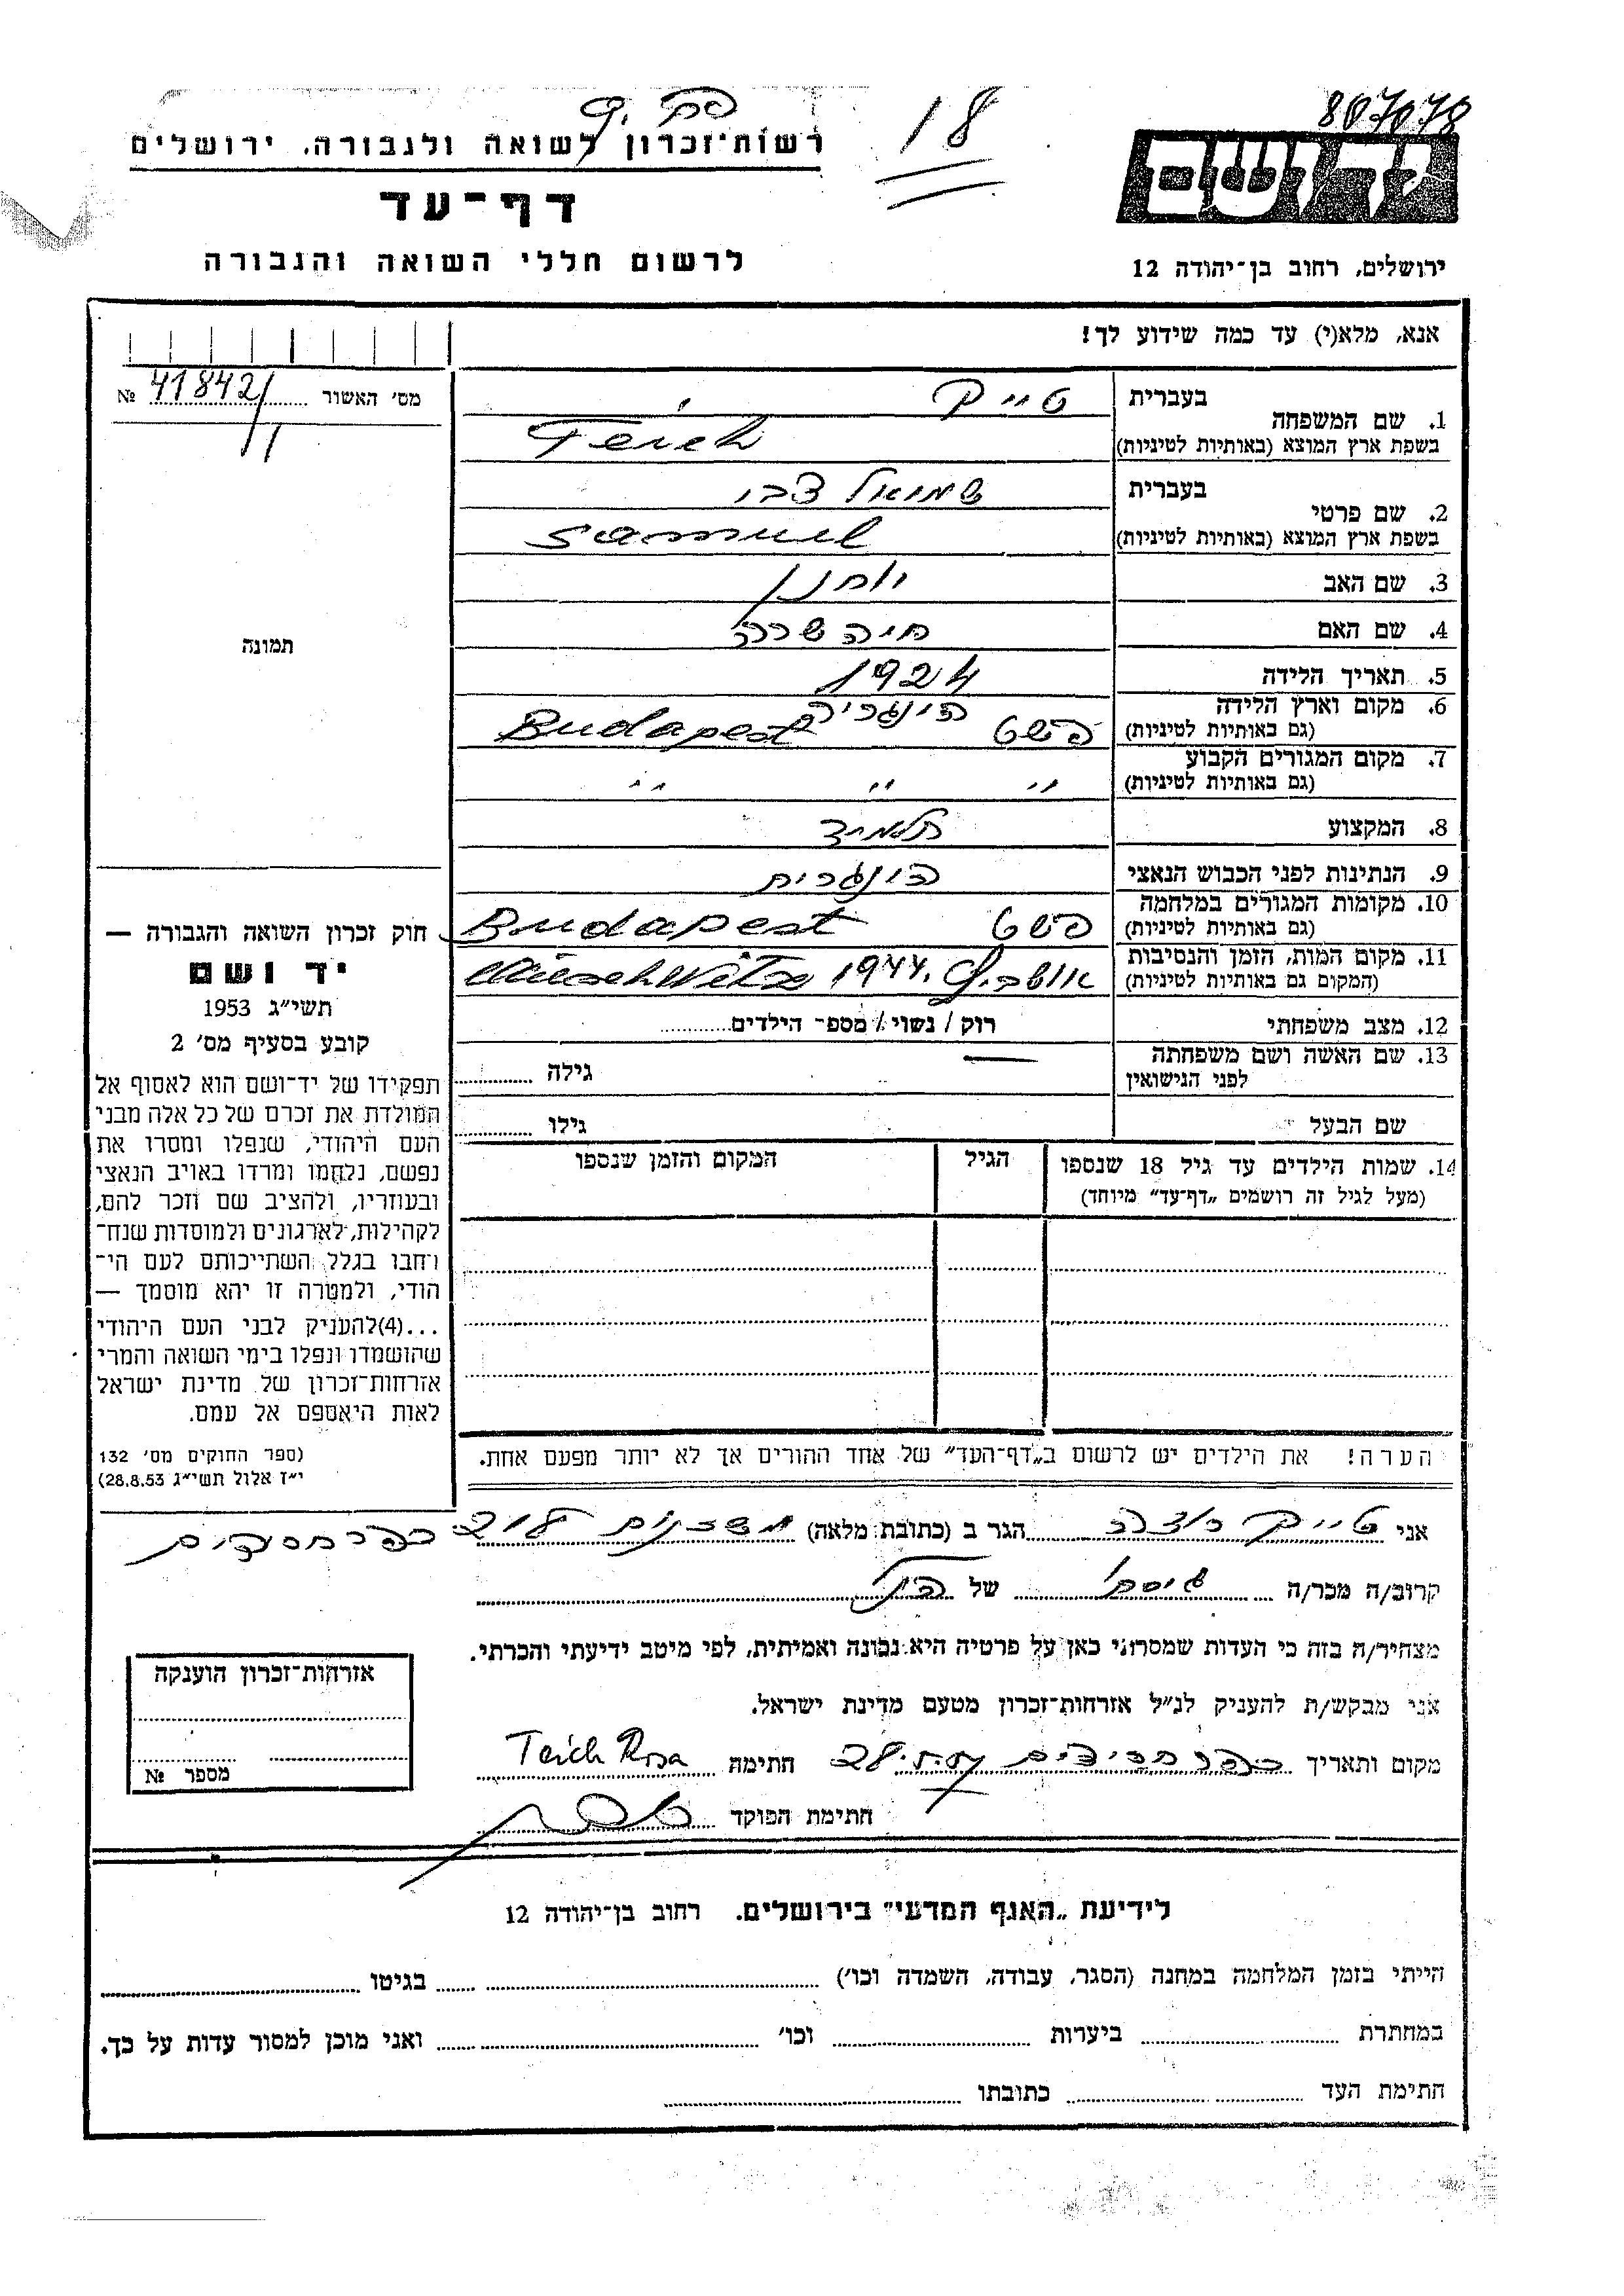 807078
18
יד ושם
רשות־זכרון לשואה ולגבורה, ירושלים
דף־עד
לרשום חללי השואה והגבורה
ירושלים, רחוב בן־יהודה 12
אנא, מלא(י) עד כמה שידוע לך!
מס׳ האשור 41842/ №
11
1. שם המשפחה
בעברית
טייק
בשפת ארץ המוצא (באותיות לטיניות)
Teich
2. שם פרטי
בעברית
שמואל צבי
בשפת ארץ המוצא (באותיות לטיניות)
Samuel
3. שם האב
יוחנן
4. שם האם
חיה שרה
תמונה
5. תאריך הלידה
1924
6. מקום וארץ הלידה
(גם באותיות לטיניות)
פשט הונגריה Budapest
7. מקום המגורים הקבוע
(גם באותיות לטיניות)
״ ״ ״
8. המקצוע
תלמיד
9. הנתינות לפני הכבוש הנאצי
הונגרית
10. מקומות המגורים במלחמה
(גם באותיות לטיניות)
פשט Budapest
11. מקום המות, הזמן והנסיבות
(המקום גם באותיות לטיניות)
1944. Auschwitz
12. מצב משפחתי
רוק / נשוי / מספר הילדים
13. שם האשה ושם משפחתה
לפני הנישואין
גילה
שם הבעל
גילו
14. שמות הילדים עד גיל 18 שנספו
(מעל לגיל זה רושמים „דף־עד״ מיוחד)
הגיל
המקום והזמן שנספו
חוק זכרון השואה והגבורה —
יד ושם
תשי״ג 1953
קובע בסעיף מס׳ 2
תפקידו של יד־ושם הוא לאסוף אל
המולדת את זכרם של כל אלה מבני
העם היהודי, שנפלו ומסרו את
נפשם, נלחמו ומרדו באויב הנאצי
ובעוזריו, ולהציב שם וזכר להם,
לקהילות, לארגונים ולמוסדות שנח־
רחבו בגלל השתייכותם לעם הי־
הודי, ולמטרה זו יהא מוסמך —
...(4)להעניק לבני העם היהודי
שהושמדו ונפלו בימי השואה והמרי
אזרחות־זכרון של מדינת ישראל
לאות היאספם אל עמם.
(ספר החוקים מס׳ 132
י״ז אלול תשי״ג 28.8.53)
הערה! את הילדים יש לרשום ב„דף־העד״ של אחד ההורים אך לא יותר מפעם אחת.
אני טייק רוזה הגר ב (כתובת מלאה) כפר חסידים
קרוב/ה מכר/ה גיסתי של הנ״ל
מצהיר/ה בזה כי העדות שמסרתי כאן על פרטיה היא נכונה ואמיתית, לפי מיטב ידיעתי והכרתי.
אני מבקש/ת להעניק לנ״ל אזרחות־זכרון מטעם מדינת ישראל.
מקום ותאריך כפר חסידים חתימה Teich Rosa
חתימת הפוקד
אזרחות־זכרון הוענקה
מספר №
לידיעת „האגף המדעי״ בירושלים. רחוב בן־יהודה 12
הייתי בזמן המלחמה במחנה (הסגר, עבודה, השמדה וכו׳) בגיטו
במחתרת ביערות וכו׳ ואני מוכן למסור עדות על כך.
חתימת העד כתובתו